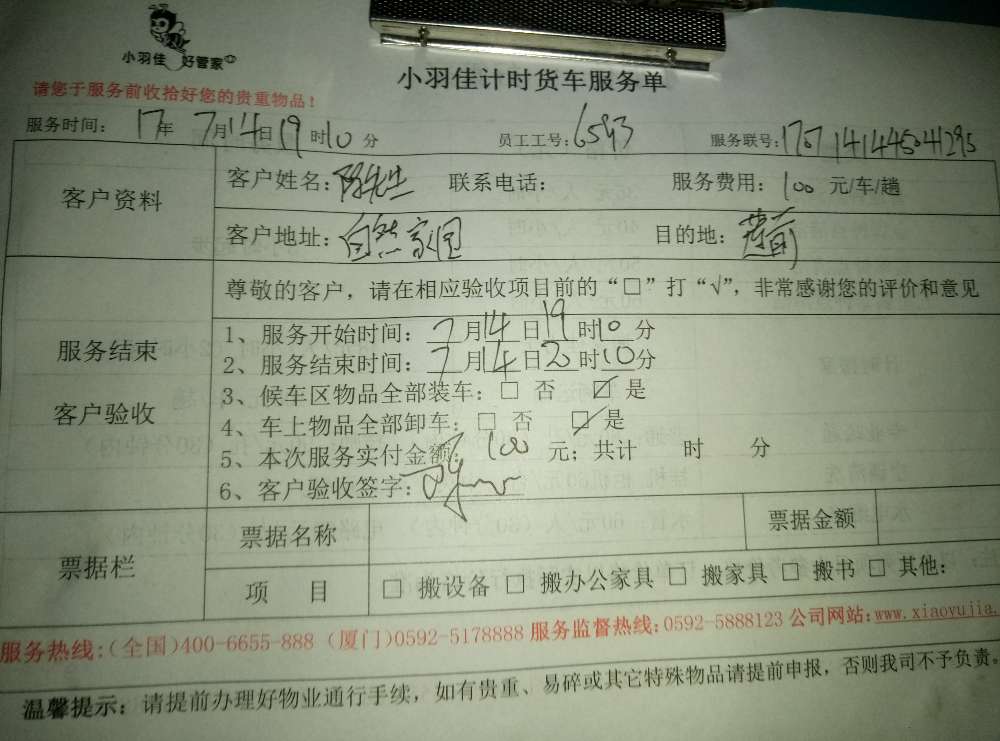 小羽佳 好管家
小羽佳计时货车服务单
请您于服务前收拾好您的贵重物品！
服务时间： 17年 7月14日19时10分 员工工号：6593 服务联号：
客户资料
客户姓名：陈先生 联系电话： 服务费用：100 元/车/趟
客户地址：自然家园 目的地：
服务结束
客户验收
尊敬的客户，请在相应验收项目前的“□”打“√”，非常感谢您的评价和意见
1、服务开始时间：7月14日19时10分
2、服务结束时间：7月14日20时10分
3、候车区物品全部装车：□ 否 ☑ 是
4、车上物品全部卸车：□ 否 ☑ 是
5、本次服务实付金额：100 元；共计 时 分
6、客户验收签字：
票据栏
票据名称 票据金额
项 目 □ 搬设备 □ 搬办公家具 □ 搬家具 □ 搬书 □ 其他：
服务热线:(全国)400-6655-888 (厦门)0592-5178888 服务监督热线:0592-5888123 公司网站:www.xiaoyujia.
温馨提示：请提前办理好物业通行手续，如有贵重、易碎或其它特殊物品请提前申报，否则我司不予负责。